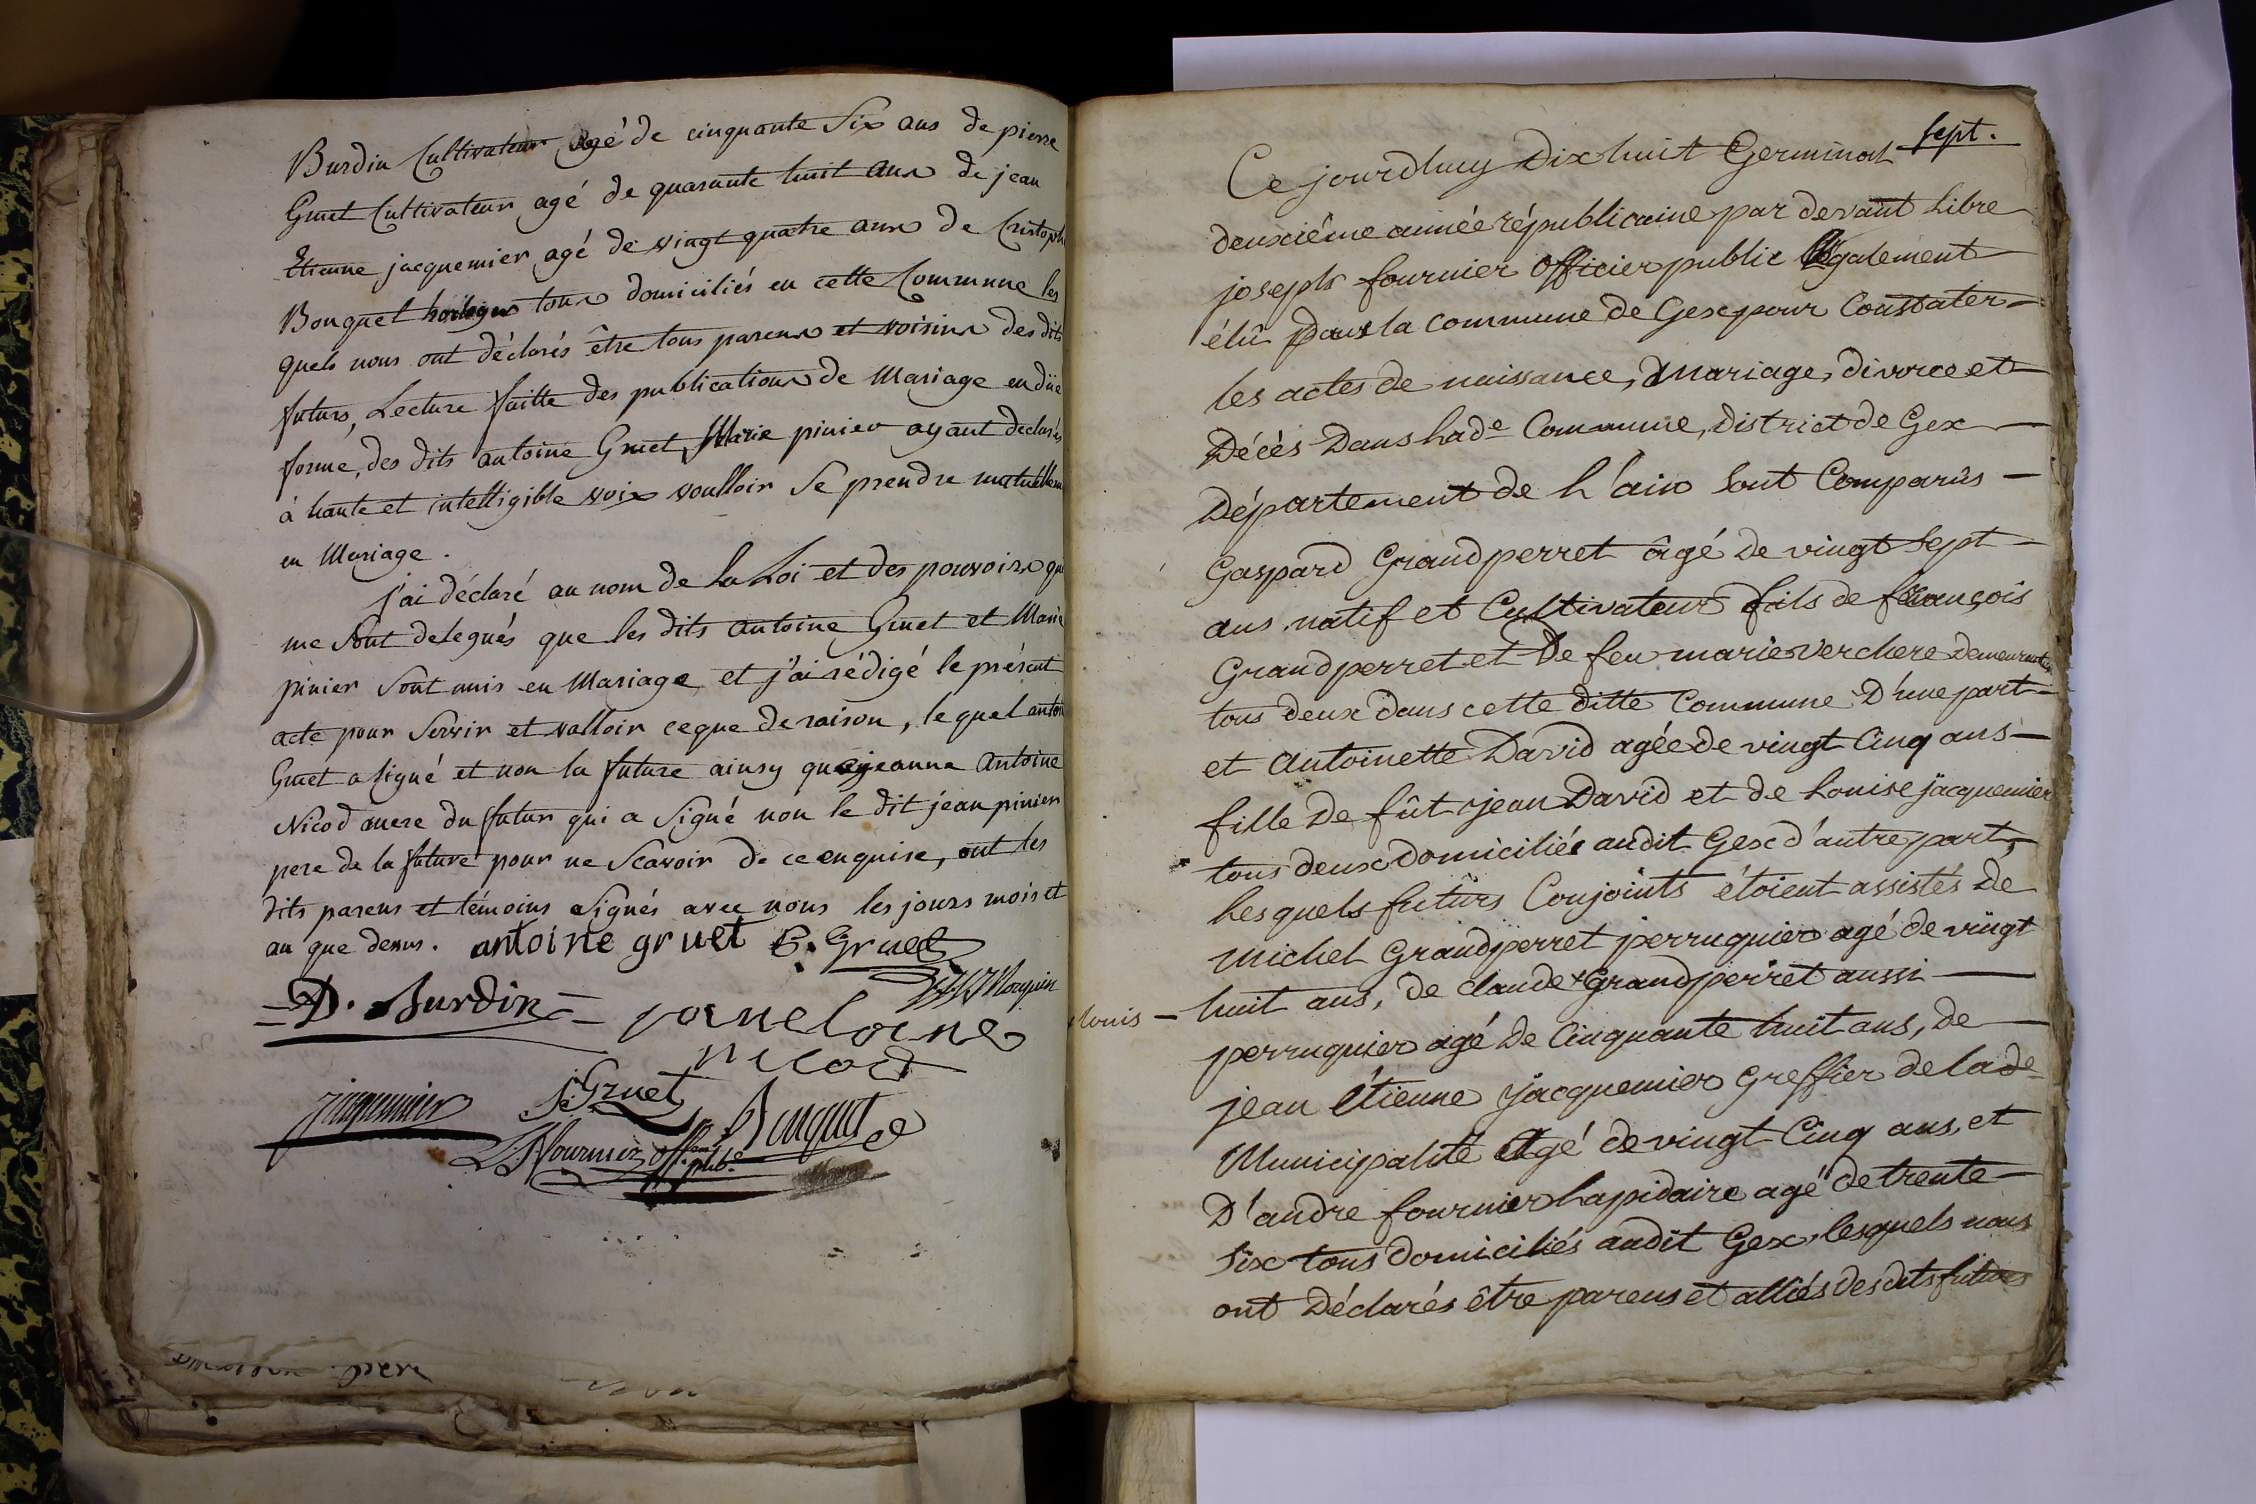 Burdin Cultivateur agé de cinquante Six ans de pierre
Gruet Cultivateur agé de quarante huit ans de jean
Etienne jacquemier agé de vingt quatre ans de Cristophe
Bouquet horloger tous domiciliés en cette Commune les
quels nous ont déclarés être tous parens et voisins des dits
futurs, Lecture faitte des publications de Mariage en düe
forme, des dits antoine Gruet, Marie pinier ayant declarés
à haute et intelligible voix voulloir Se prendre mutuellem
en Mariage.
j'ai déclaré au nom de la Loi et des pouvoirs qui
me Sont delegués que les dits antoine Gruet et Marie
pinier Sont unis en Mariage et j'ai rédigé le présent
acte pour Servir et valloir ce que de raison, le quel antoi
Gruet a Signé et non la future ainsy que jeanne Antoine
Nicod mere du futur qui a Signé non le dit jean pinier
pere de la future pour ne Scavoir de ce enquise, ont les
dits parens et témoins Signés avec nous les jours mois et
an que dessus. antoine gruet E. Gruet
D. Burdin janeloine
nicod
Jacquemier J. Gruet Bouquet
LJ fournier off. pub.
sept.
Ce jourdhuy Dix huit Germinal
deuxiême année républicaine par devant Libre
joseph fournier officier public légalement
élû Dans la commune de Gex pour Constater
les actes de naissance, Mariage, divorce et
Décès Dans Lade Commune, District de Gex
Département de L'ain Sont Comparûs
Gaspard Grandperret âgé de vingt Sept
ans natif et Cultivateur fils de françois
Grandperret et De feu marie verchere demeurant
tous deux dans cette ditte Commune D'une part
et Antoinette David agée de vingt Cinq ans
fille De fût jean David et de Louise jacquemier
tous deux Domiciliés audit Gex d'autre part,
Lesquels futûrs Conjoints étoient assistés de
Michel Grandperret perruquier agé de vingt
huit ans, de claude + Grandperret aussi
+ louis
perruquier agé de Cinquante huit ans, de
jean étienne jacquemier Greffier de lade
Municipalité Agé de vingt Cinq ans, et
D'andre fournier Lapidaire agé de trente
Six tous domiciliés audit Gex, lesquels nous
ont Déclarés être parens et alliés des dits futurs